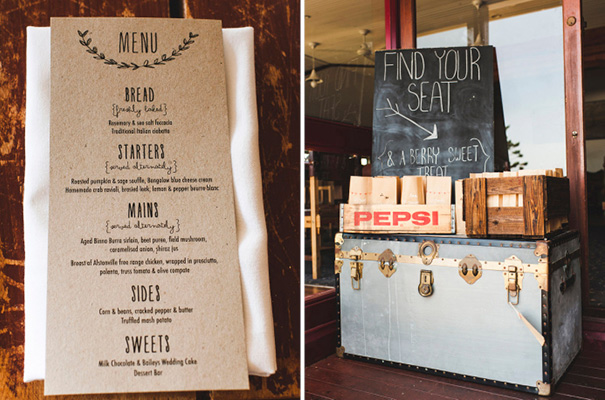 MENU
BREAD
{freshly baked}
Rosemary & sea salt focaccia
Traditional Italian ciabatta
STARTERS
{served alternately}
Roasted pumpkin & sage souffle, Bangalow blue cheese cream
Homemade crab ravioli, braised leek, lemon & pepper beurre-blanc
MAINS
{served alternately}
Aged Binna Burra sirloin, beet puree, field mushroom,
caramelised onion, shiraz jus
Breast of Alstonville free range chicken, wrapped in prosciutto,
polenta, truss tomato & olive compote
SIDES
Corn & beans, cracked pepper & butter
Truffled mash potato
SWEETS
Milk Chocolate & Baileys Wedding Cake
Dessert Bar
FIND YOUR
SEAT
{& A BERRY SWEET
TREAT
PEPSI